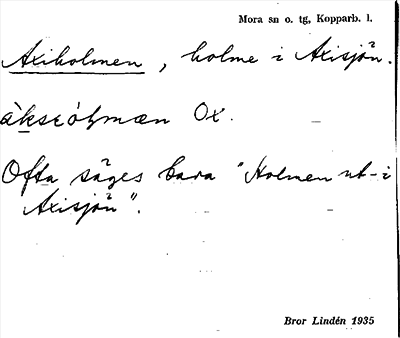 Mora sn o. tg, Kopparb. l.
Axiholmen, holme i Axisjön.
Ox.
Ofta säges bara "Holmen ut i
Axisjön".
Bror Lindén 1935